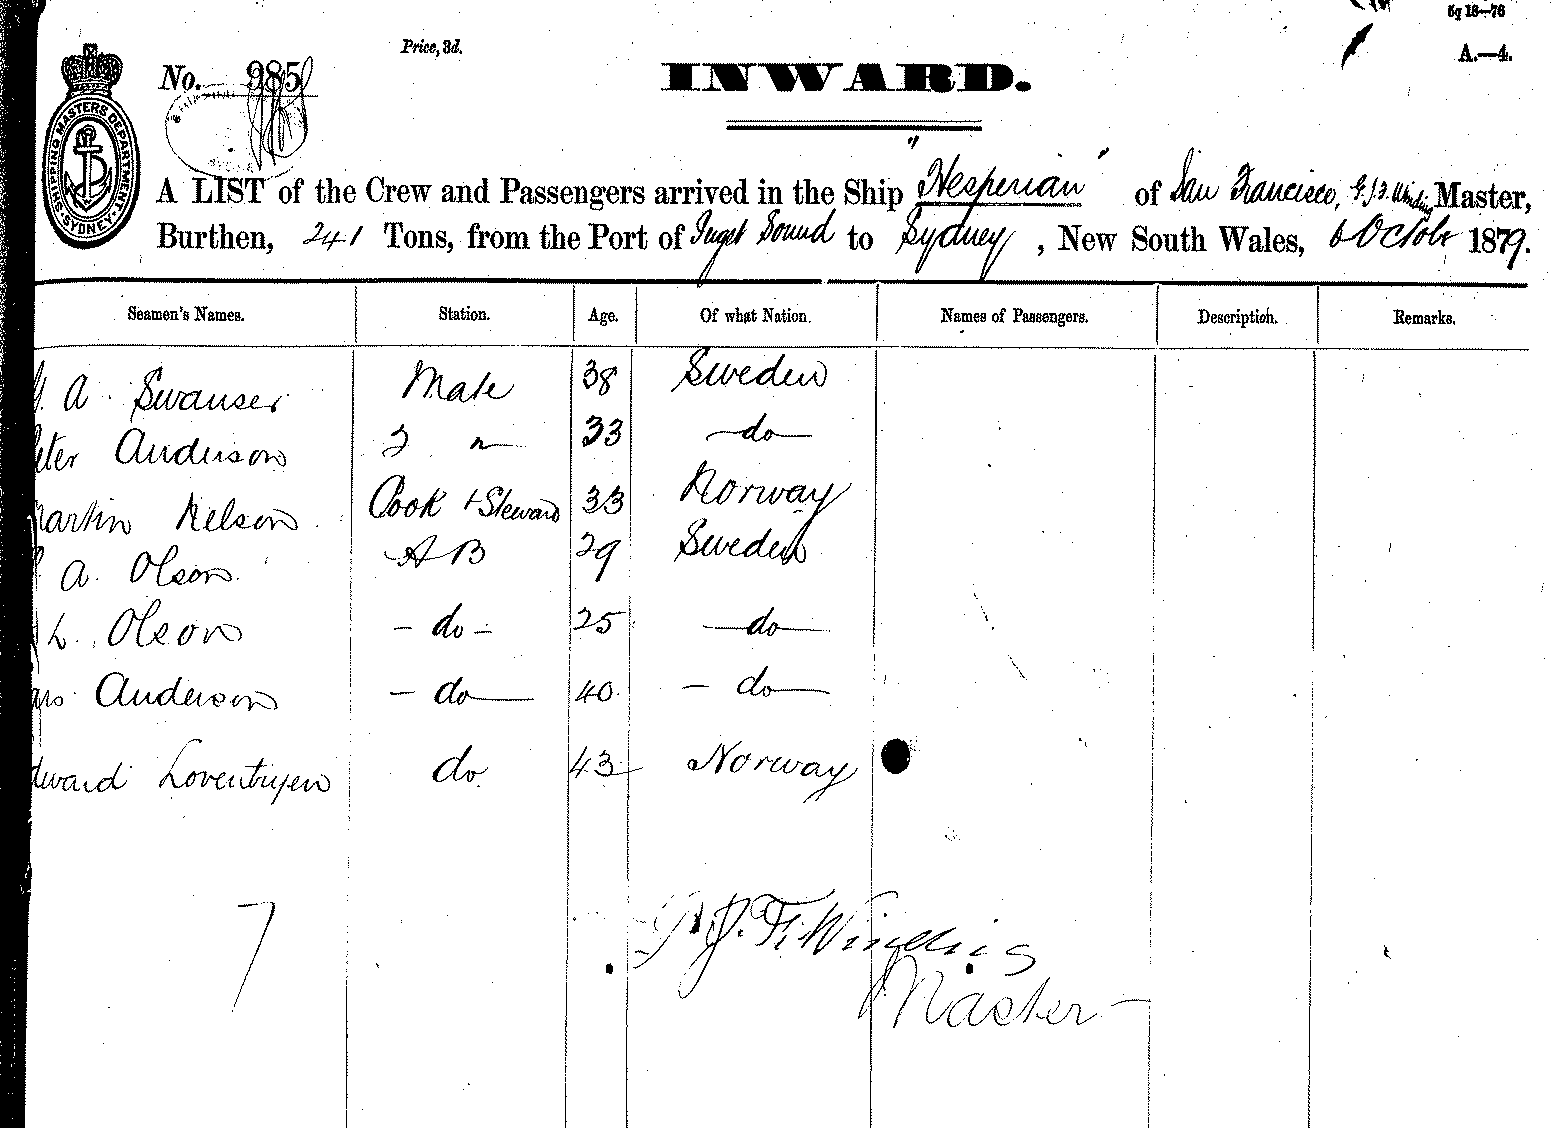 6g 18—76
Price, 3d.
A.—4.
No. 985
INWARD.
SHIPPING MASTERS DEPARTMENT. SYDNEY.
A LIST of the Crew and Passengers arrived in the Ship "Hesperian" of San Francisco, Master,
Burthen, 241 Tons, from the Port of Puget Sound to Sydney, New South Wales, 6 Octobr 1879.
Seamen's Names. Station. Age. Of what Nation. Names of Passengers. Description. Remarks.
A. Swanser Mate 38 Sweden
eter Anderson 2 " 33 —do—
martin Nelson Cook + Steward 33 Norway
A. Olson AB 29 Sweden
L. Olson - do - 25 —do—
ars Anderson - do— 40 - do—
dward do 43 Norway
7
J. F. Winding
Master